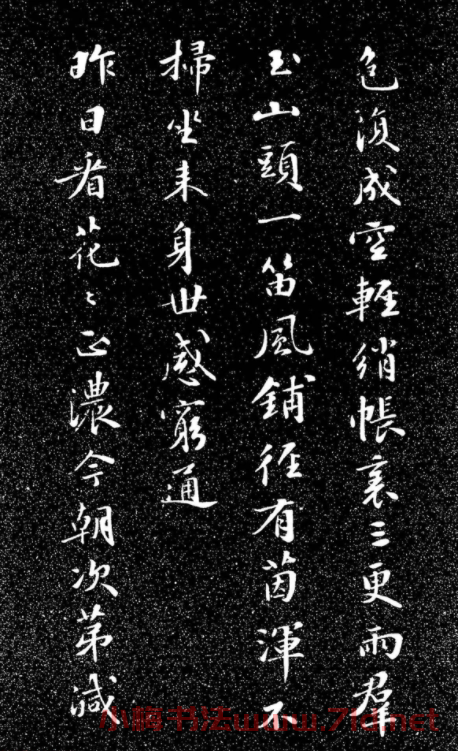 色須成空輕綃帳裏三更雨羣
玉山頭一笛風鋪徑有茵渾不
掃坐来身世感窮通
昨日看花〻正濃今朝次苐减
小楷书法www.71d.net